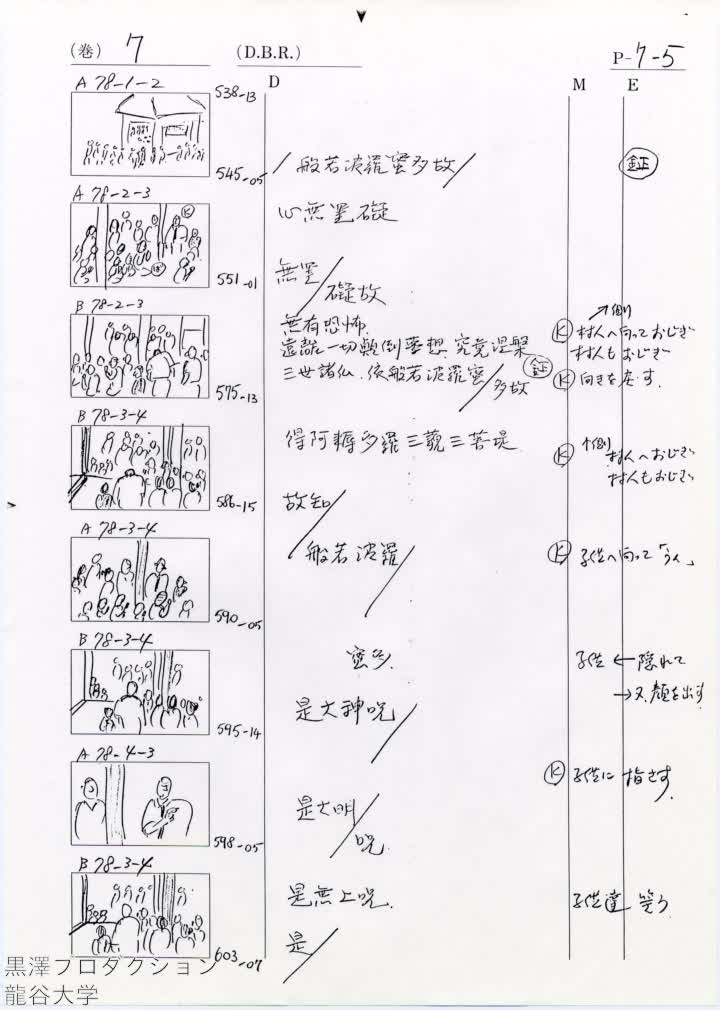 (巻) 7 (D.B.R.) P-7-5
D M E
A 78-1-2 538-13
545-05 般若波羅蜜多故 鉦
A 78-2-3 K
心無罣礙
551-01 無罣
礙故
B 78-2-3 無有恐怖
遠離一切顛倒夢想 究竟涅槃 K 村人へ向っておじぎ
村人もおじぎ
三世諸仏、依般若波羅蜜 鉦 K 向きを直す。
575-13 多故
B 78-3-4 得阿耨多羅三藐三菩提
K 村人へおじぎ
村人もおじぎ
586-15 故知
A 78-3-4 般若波羅 K 子供へ向って「うん」
590-05
B 78-3-4 蜜多 子供 ← 隠れて
→ 又、顔を出す
是大神呪
595-14
A 78-4-3 K 子供に 指さす。
是大明
598-05 呪
B 78-3-4 是無上呪 子供達 笑う
603-07 是
黒澤プロダクション
龍谷大学